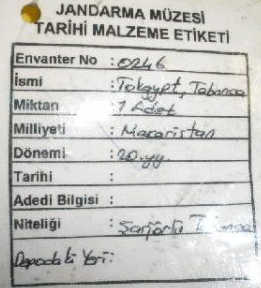 JANDARMA MÜZESİ
TARİHİ MALZEME ETİKETİ
Envanter No : 0246
İsmi : Tokgypt, Tabanca
Miktarı : 1 Adet
Milliyeti : Macaristan
Dönemi : 20.yy.
Tarihi :
Adedi Bilgisi :
Niteliği : Şarjörlü Tabanca
Depodaki Yeri: